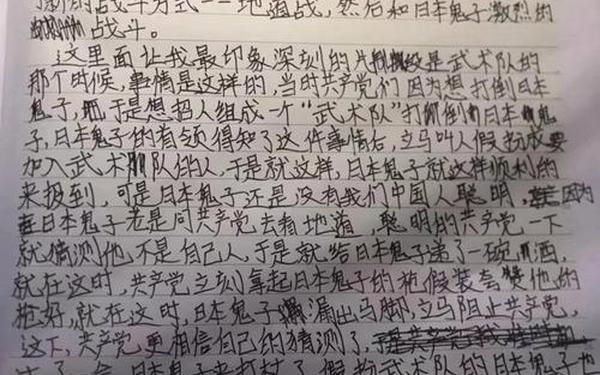 的新的战斗方式——地道战，然后和日本鬼子激烈的
战斗。
这里面让我最印象深刻的片段是武术队的
那个时候，事情是这样的，当时共产党们因为想打倒日本
鬼子，于是想招人组成一个“武术队”打倒日本鬼
子，日本鬼子的首领得知了这件事情后，立马叫人假扮成要
加入武术队的人，于是就这样，日本鬼子就这样顺利的
来报到，可是日本鬼子还是没有我们中国人聪明，因为
日本鬼子老是问共产党去看地道，聪明的共产党一下
就猜测他不是自己人，于是就给日本鬼子递了一碗酒，
就在这时，共产党立刻拿起日本鬼子的枪假装夸赞他的
枪好，就在这时，日本鬼子漏出马脚，立马阻止共产党，
这下，共产党更相信自己的猜测了，
日本鬼子 假扮武术队的日本鬼子也